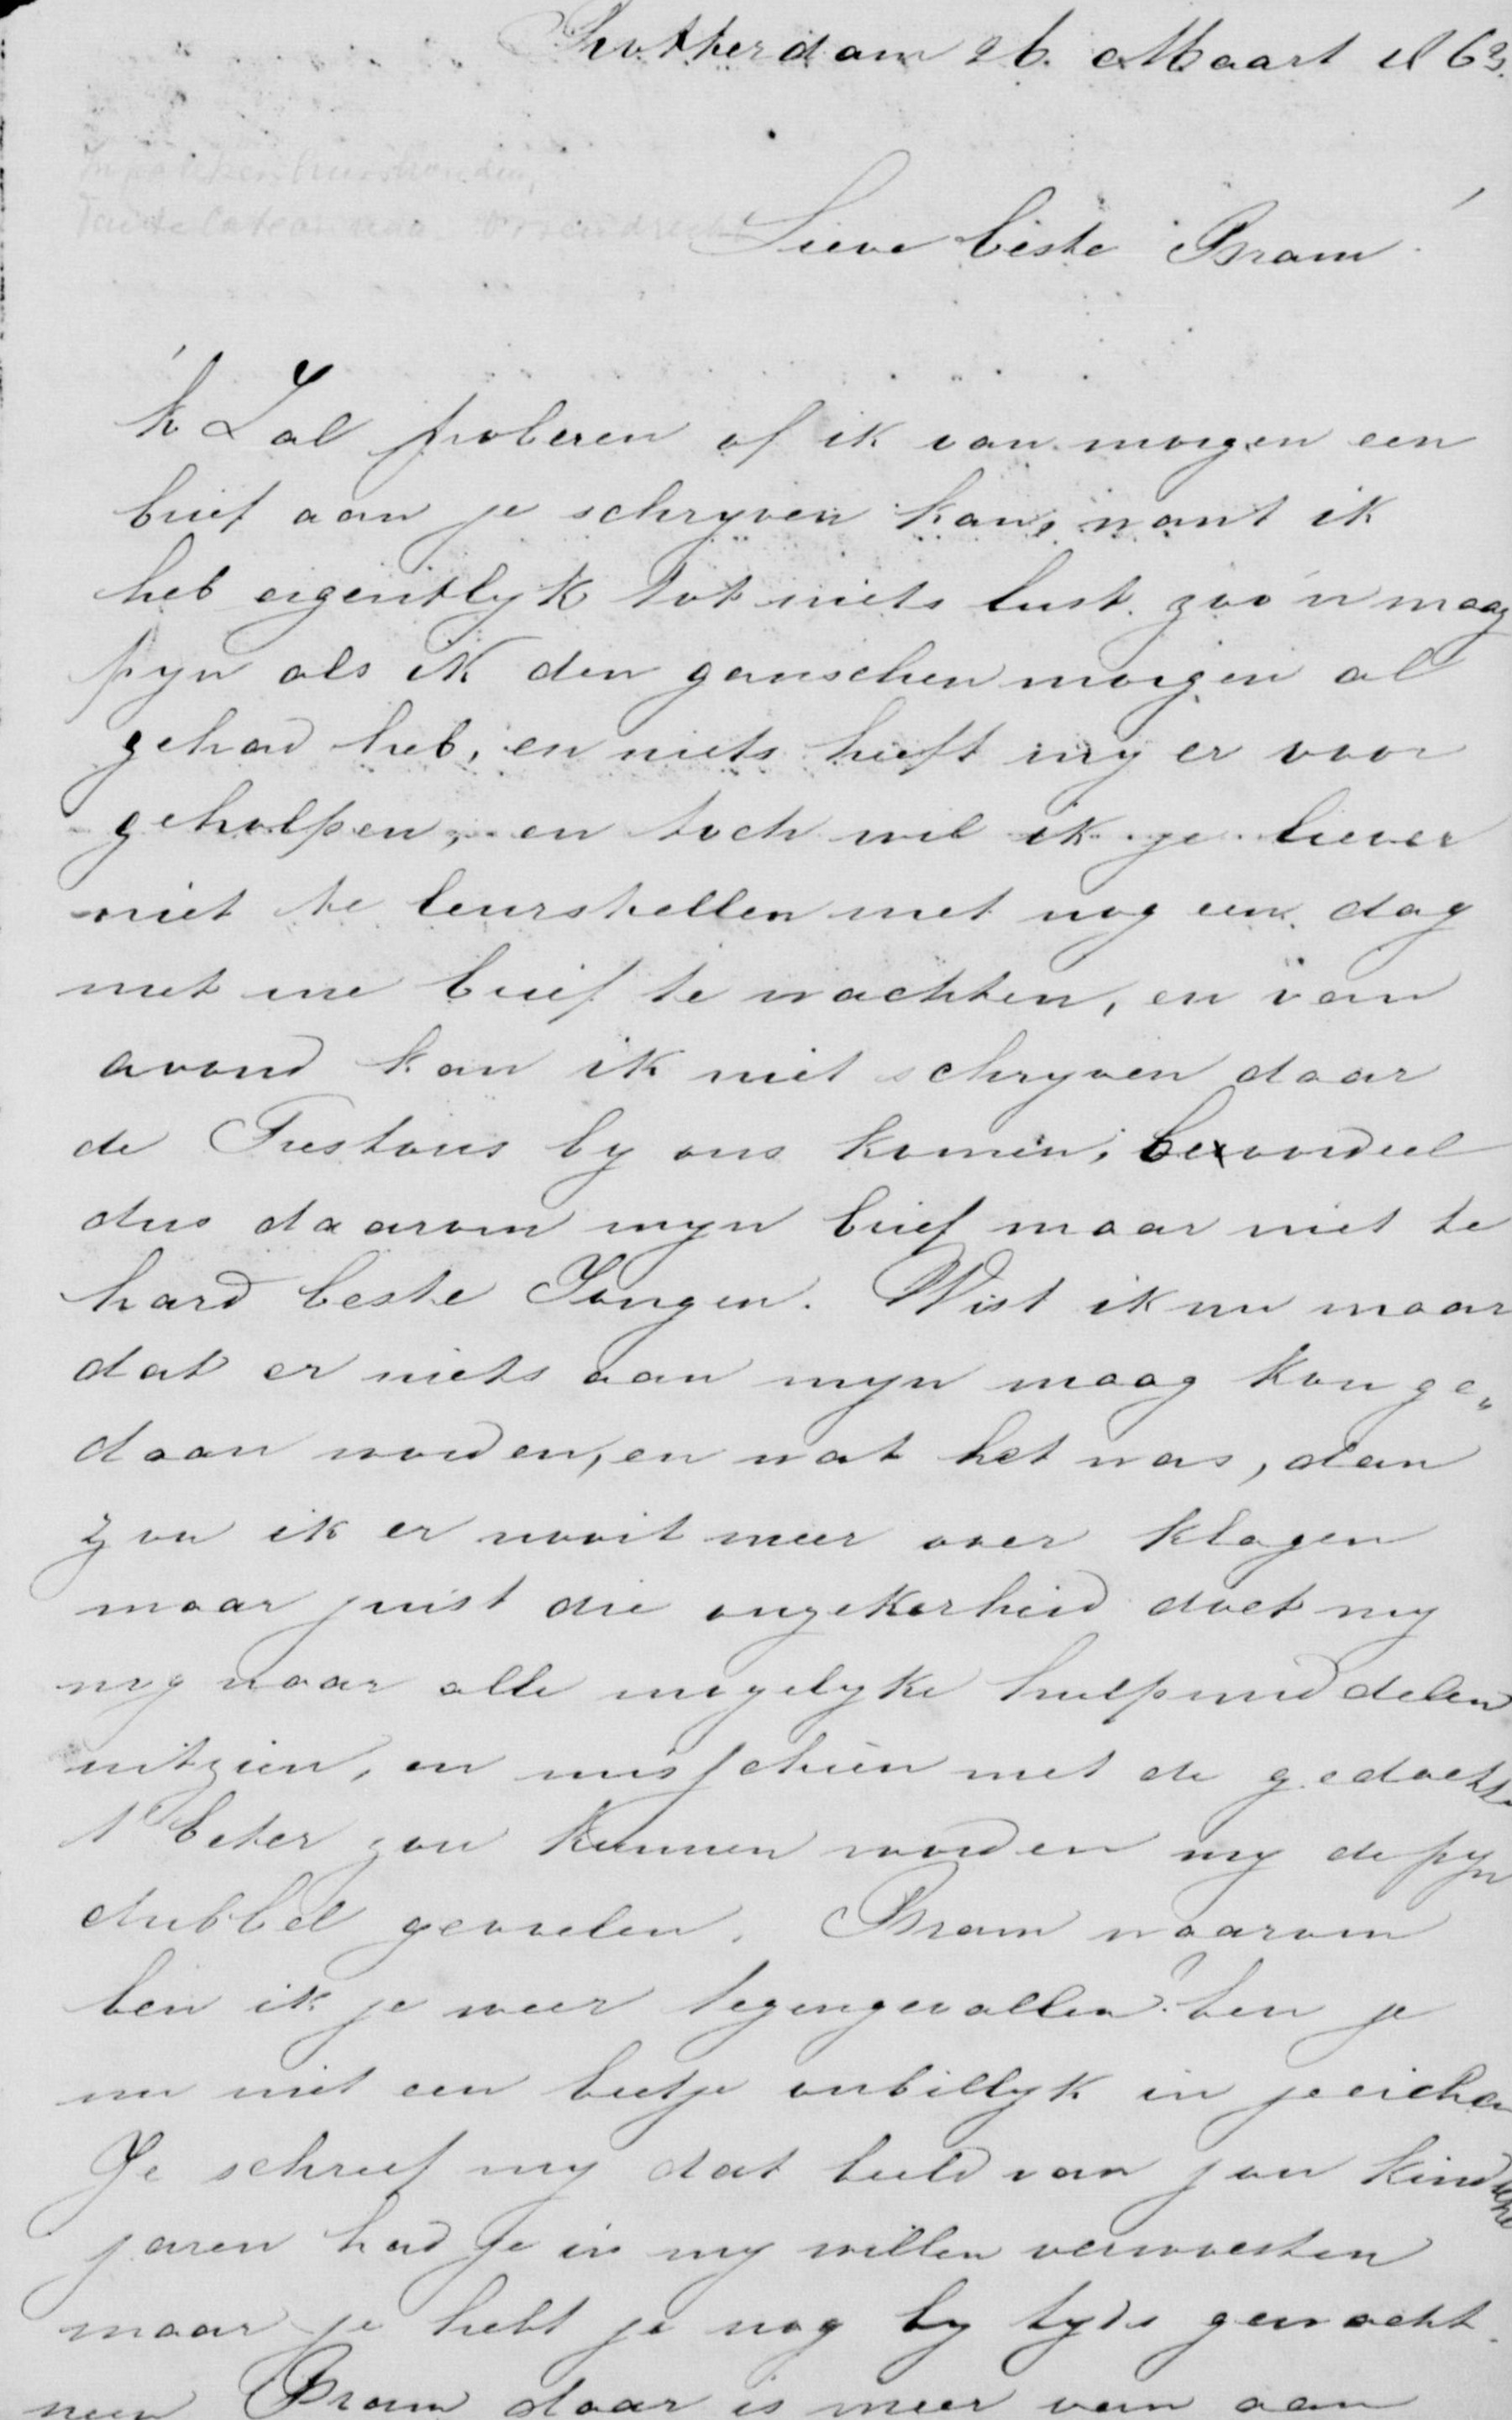 Rotterdam 26. Maart 1863.
Lieve beste Bram!
'k Zal proberen of ik van morgen een
brief aan je schryven kan, want ik
heb eigentlyk tot niets lust. zoo'n maag
pyn als ik den ganschen morgen al
gehad heb, en niets heeft my er voor
geholpen, en toch wil ik je liever
niet te leurstellen met nog een dag
met me brief te wachten, en van
avond kan ik niet schryven daar
de Trestons by ons komen, beoordeel
dus daarom myn brief maar niet te
hard beste Jongen. Wist ik nu maar
dat er niets aan myn maag kon ge„
daan worden, en wat het was, dan
zou ik er nooit meer over klagen
maar juist die onzekerheid doet my
nog naar alle mogelyke hulpmiddelen
uitzien, en misschien met de gedachte
't beter zou kunnen worden my de pyn
dubbel gevoelen. Bram waarom
ben ik je weer tegengevallen? ben je
nu niet een beetje onbillyk in je eischen
Je schreef my dat beeld van jou kindsche
jaren had je in my willen verwoesten
maar je hebt je nog by tyds gewacht.
neen Bram daar is meer van aan